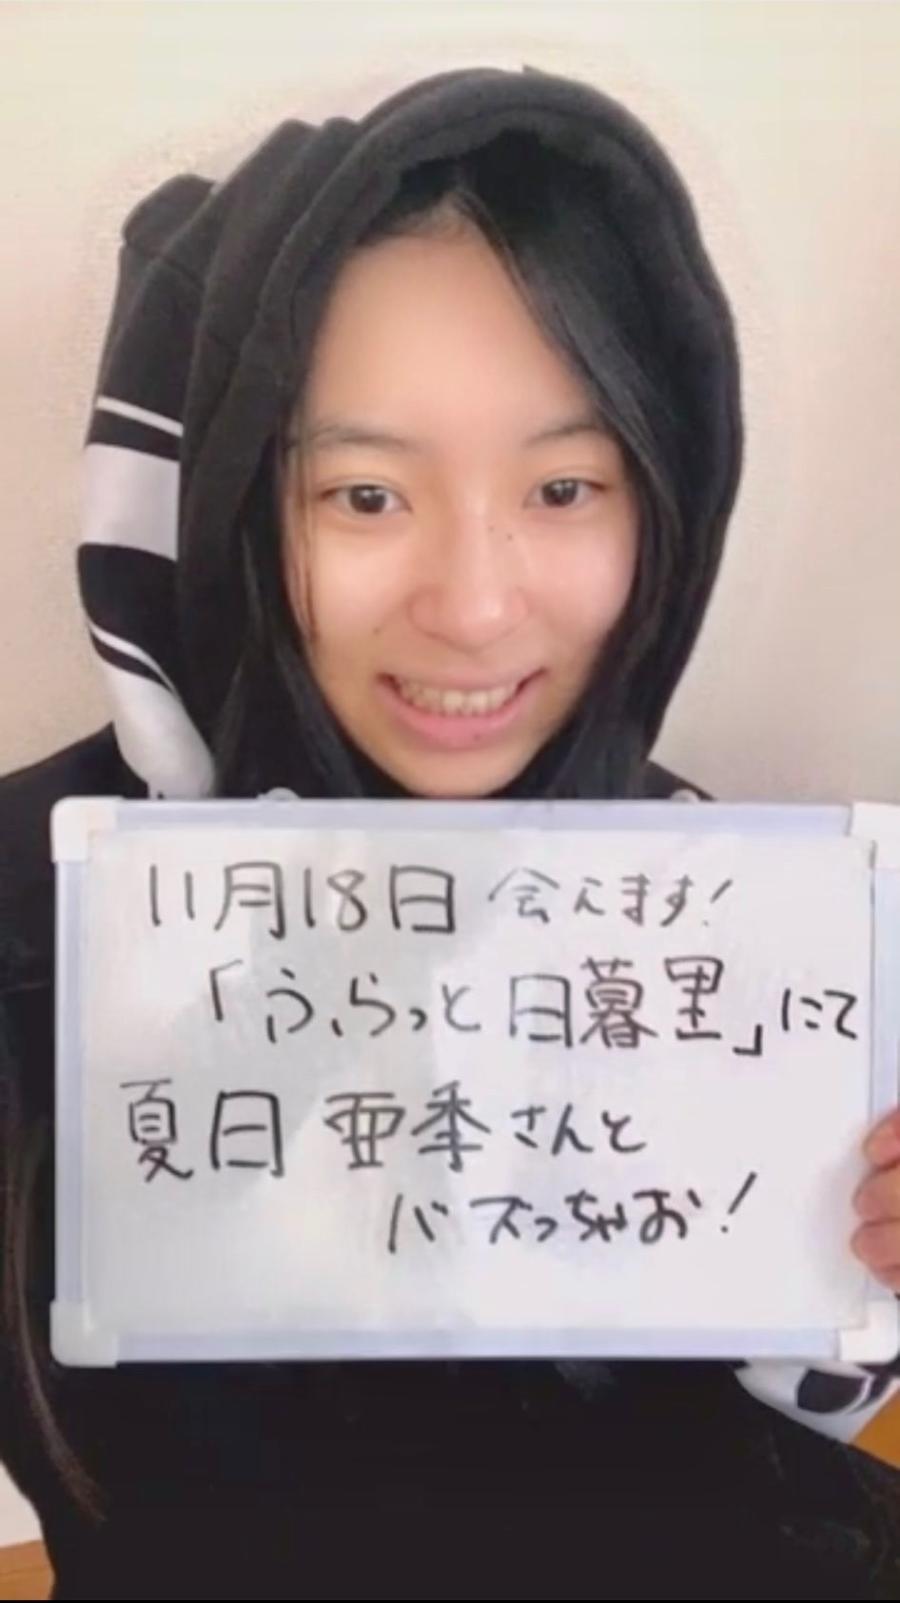 11月18日 会えます!
「ふらっと日暮里」にて
夏日 亜季さんと
バズっちゃお!